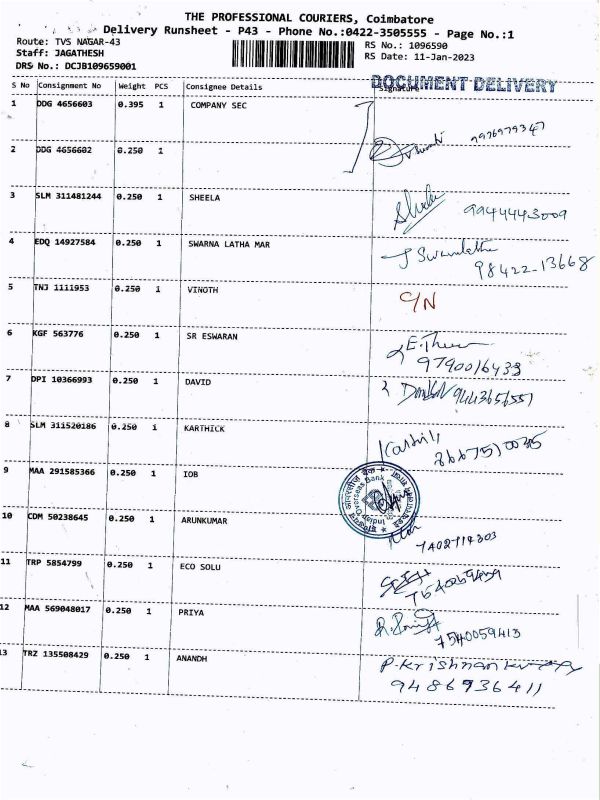 THE PROFESSIONAL COURIERS, Coimbatore
Delivery Runsheet - P43 - Phone No.:0422-3505555 - Page No.:1
Route: TVS NAGAR-43
RS No.: 1096590
Staff: JAGATHESH
RS Date: 11-Jan-2023
DRS No.: DCJB109659001
DOCUMENT DELIVERY
S No Consignment No Weight PCS Consignee Details Signature
1 DDG 4656603 0.395 1 COMPANY SEC
2 DDG 4656602 0.250 1
3 SLM 311481244 0.250 1 SHEELA
9944443009
4 EDQ 14927584 0.250 1 SWARNA LATHA MAR
98422-13668
5 TNJ 1111953 0.250 1 VINOTH C/N
6 KGF 563776 0.250 1 SR ESWARAN
9790016433
7 DPI 10366993 0.250 1 DAVID
8 SLM 311520186 0.250 1 KARTHICK
9 MAA 291585366 0.250 1 IOB
Indian Overseas Bank
10 CDM 50238645 0.250 1 ARUNKUMAR
11 TRP 5854799 0.250 1 ECO SOLU
12 MAA 569048017 0.250 1 PRIYA
7540059413
13 TRZ 135508429 0.250 1 ANANDH
9486936411